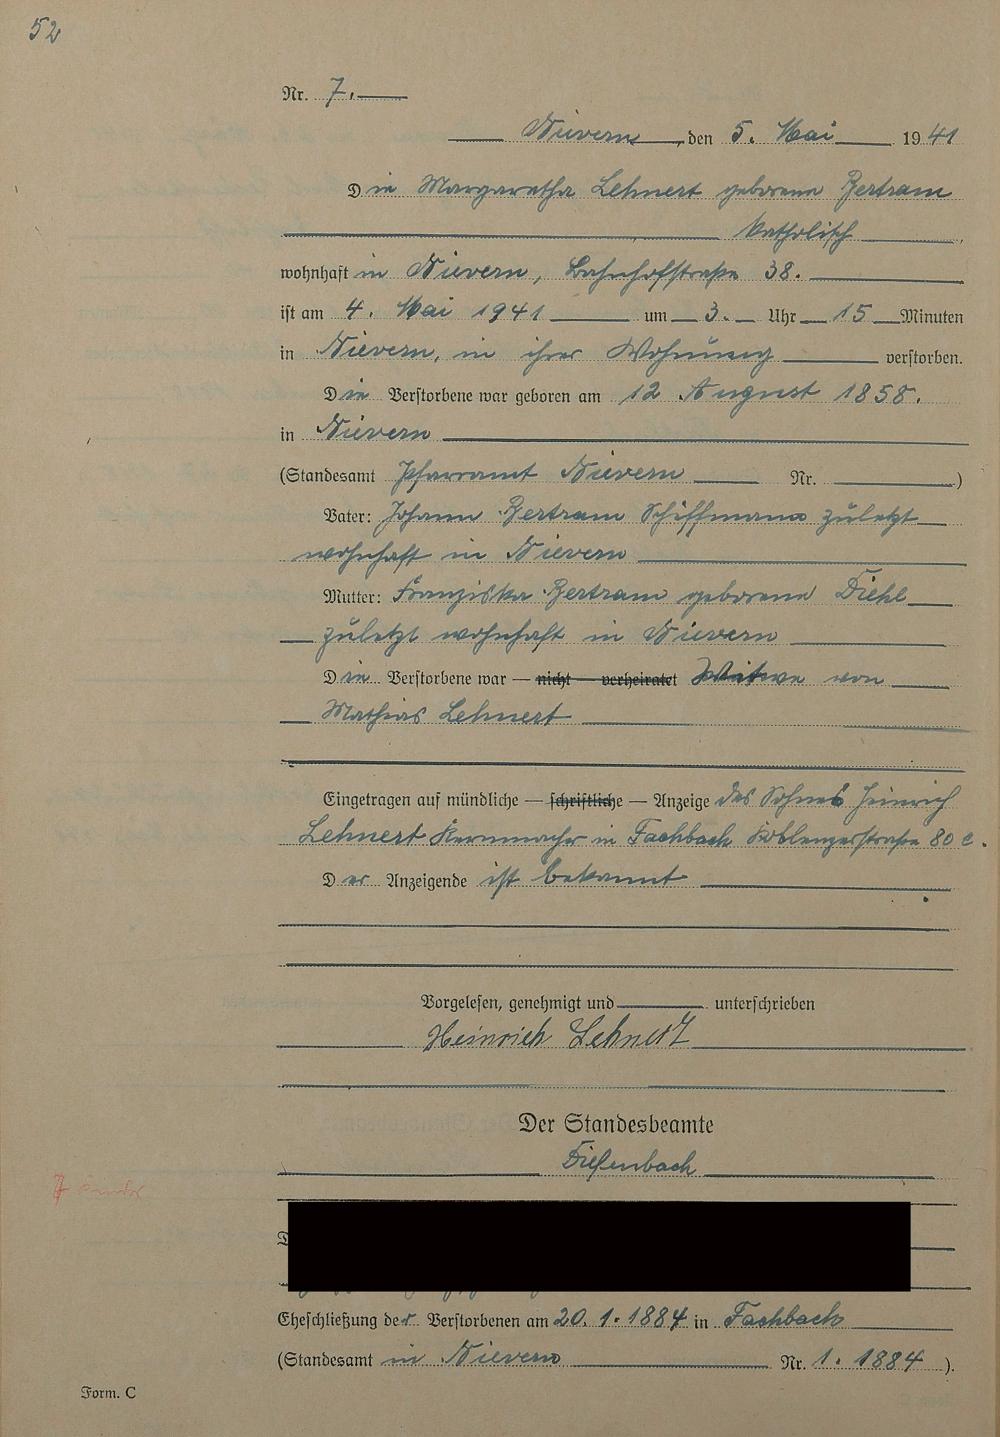 52
Nr. 7.
Nievern, den 5. Mai 1941
Die Margaretha Lehnert geborene Bertram
katholisch
wohnhaft in Nievern, Bahnhofstraße 38.
ist am 4. Mai 1941 um 3. Uhr 15 Minuten
in Nievern, in ihrer Wohnung verstorben.
Die Verstorbene war geboren am 12 August 1858.
in Nievern
(Standesamt Pfarramt Nievern Nr. )
Vater: Johann Bertram Schiffmann zuletzt
wohnhaft in Nievern
Mutter: Franziska Bertram geborene Diehl
zuletzt wohnhaft in Nievern
Die Verstorbene war — nicht — verheiratet Witwe von
Mathias Lehnert
Eingetragen auf mündliche — schriftliche — Anzeige des Sohnes Heinrich
Lehnert Kernmacher in Fachbach Koblenzerstraße 80 c.
Der Anzeigende ist bekannt
Vorgelesen, genehmigt und unterschrieben
Heinrich Lehnert
Der Standesbeamte
Diefenbach
D
Eheschließung der Verstorbenen am 20. 1. 1884 in Fachbach
(Standesamt in Nievern Nr. 1. 1884 ).
Form. C